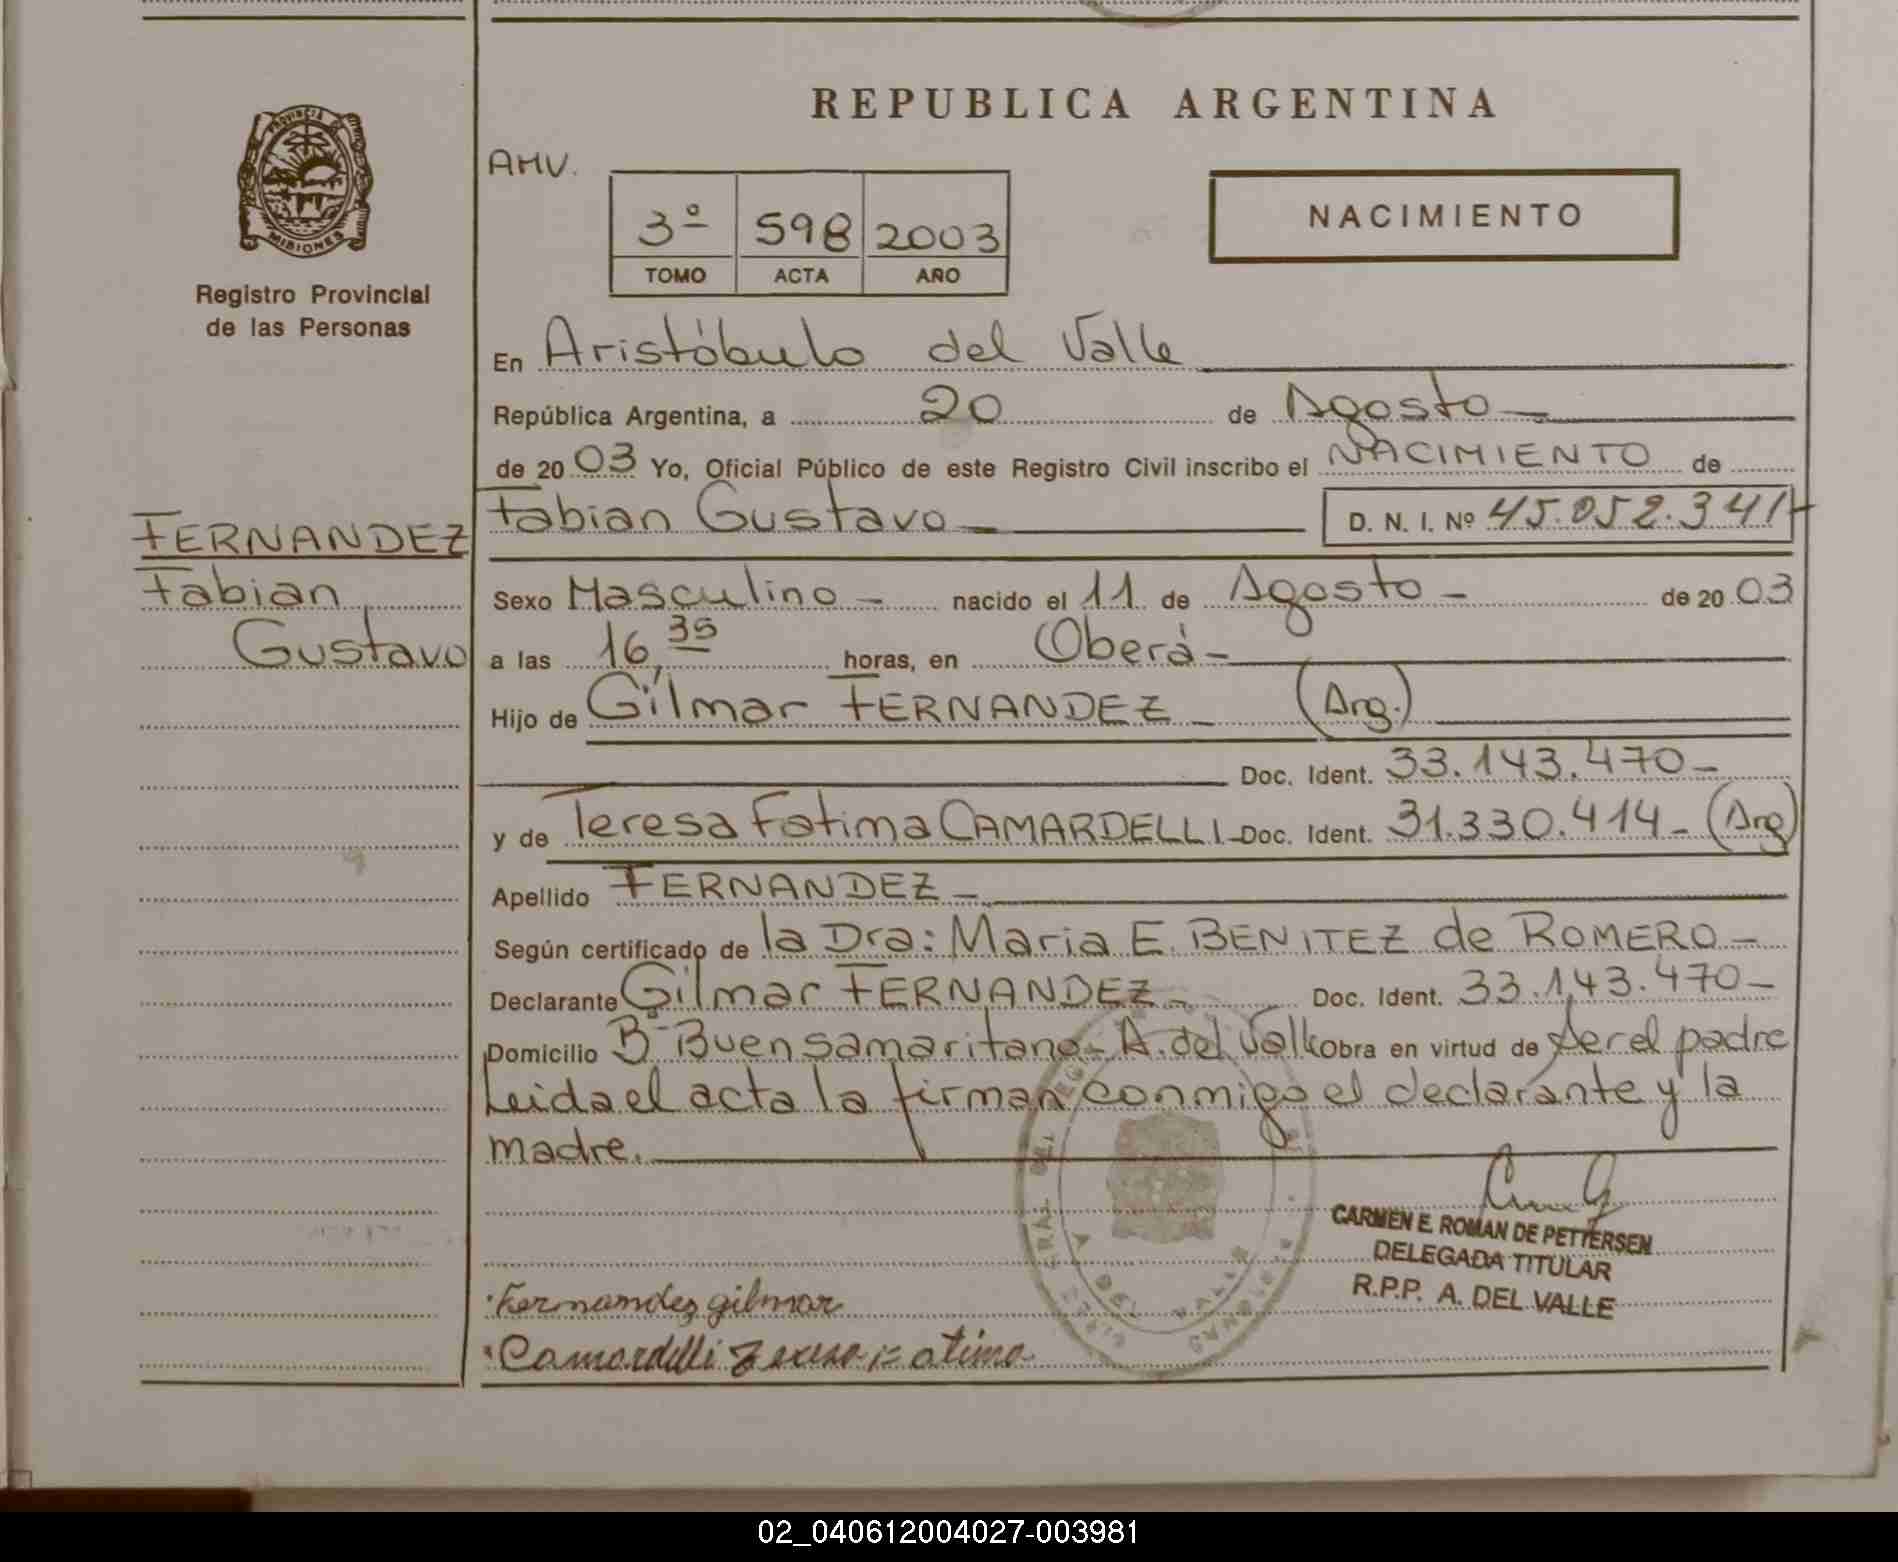 REPUBLICA ARGENTINA
PROVINCIA DE
MISIONES
Registro Provincial
de las Personas
AMV.
3º 598 2003
TOMO ACTA AÑO
NACIMIENTO
En Aristóbulo del Valle
República Argentina, a 20 de Agosto
de 20 03 Yo, Oficial Público de este Registro Civil inscribo el NACIMIENTO de
Fabian Gustavo D. N. I. Nº 45.052.341
FERNANDEZ
Fabian
Gustavo
Sexo Masculino - nacido el 11 de Agosto - de 20 03
a las 16,35 horas, en Oberá-
Hijo de Gilmar FERNANDEZ - (Arg.)
Doc. Ident. 33.143.470-
y de Teresa Fatima CAMARDELLI- Doc. Ident. 31.330.414- (Arg)
Apellido FERNANDEZ -
Según certificado de la Dra: Maria E. BENITEZ de ROMERO-
Declarante Gilmar FERNANDEZ- Doc. Ident. 33.143.470-
Domicilio Bº Buen Samaritano- A. del Valle obra en virtud de ser el padre
Leida el acta la firman conmigo el declarante y la
madre.
CARMEN E. ROMAN DE PETTERSEN
DELEGADA TITULAR
R.P.P. A. DEL VALLE
Fernandez gilmar
Camardelli Teresa Fatima
A DEL VALLE
02_040612004027-003981